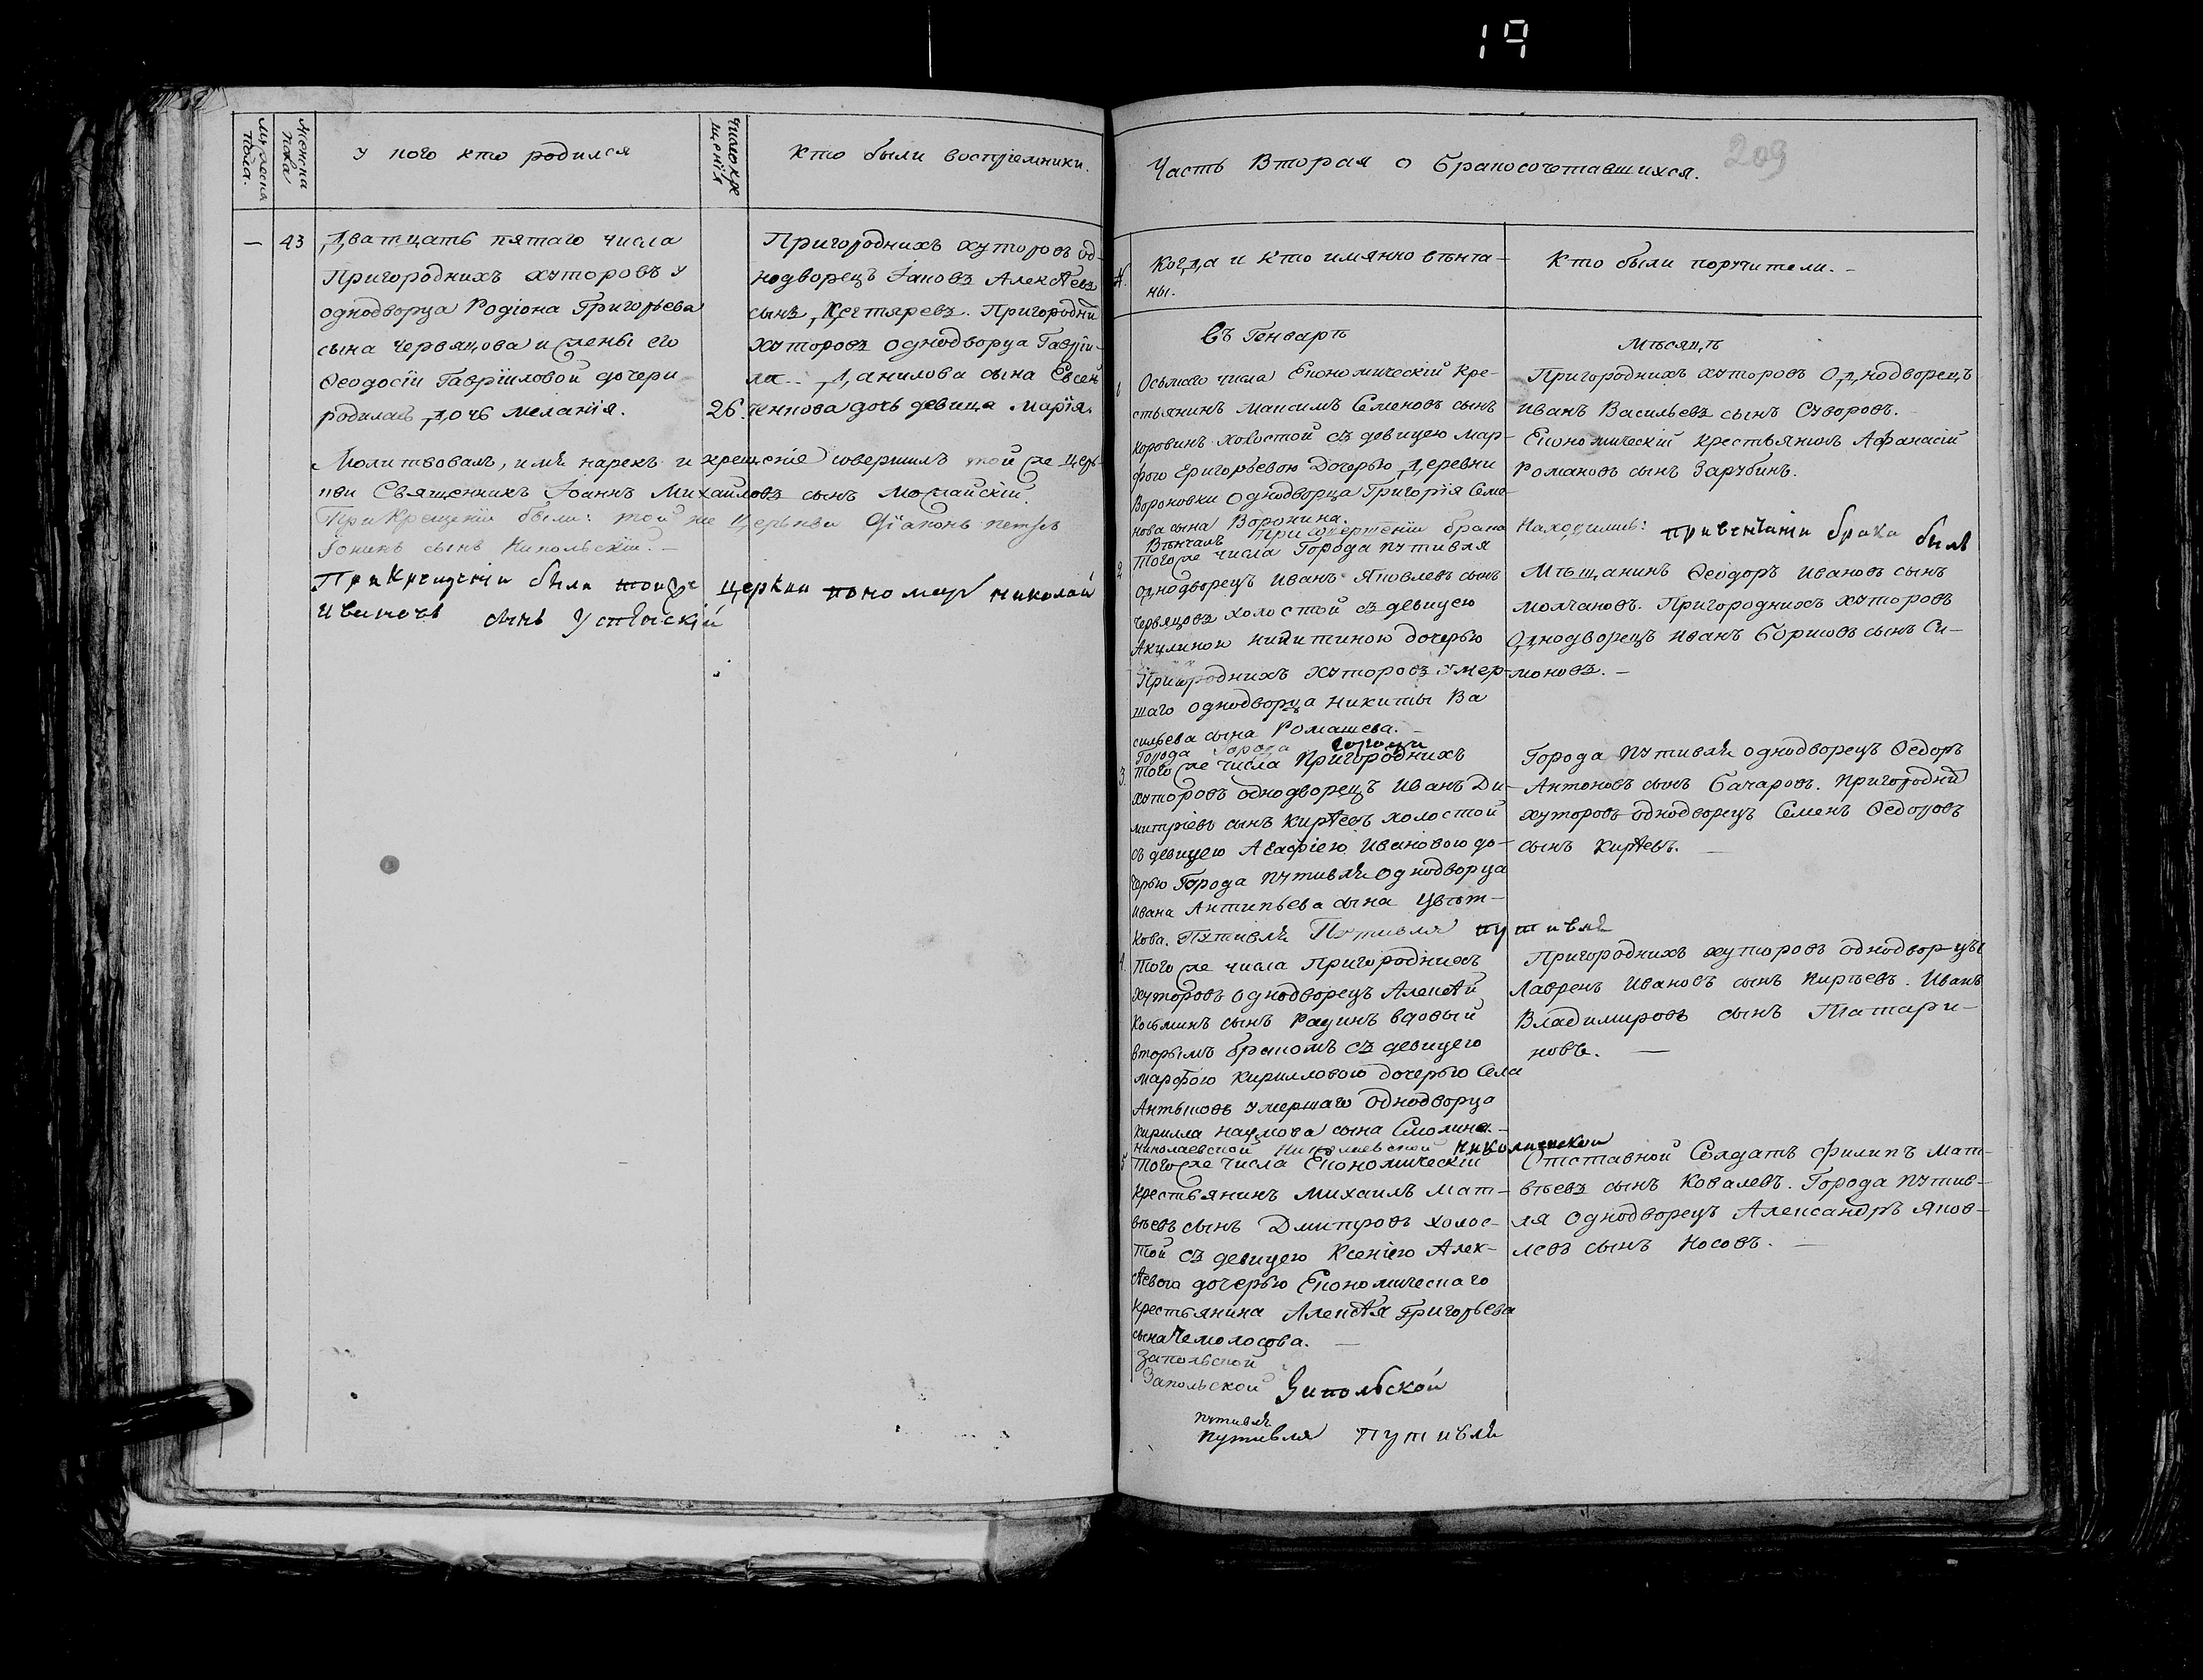 19
Мужеска пола.
Женска пола
У кого кто родился
число крещенїя
Кто были воспрїемники.
— 43
Дватцать пятаго числа
Пригороднихъ хуторовъ у
однодворца Родїона Григорьева
сына Червяцова и жены его
Ѳеодосїи Гаврїиловой дочери
родилась дочь Меланїя.
26.
Пригороднихъ хуторовъ од-
нодворецъ Іаковъ Алексѣевъ
сынъ Дегтяревъ. Пригородни
хуторовъ однодворца Гаврїи-
ла Данилова сына Евсен
ченкова дочь девица Марїя.
Молитвовалъ, имя нарекъ и крещенїе совершилъ той же церь
кви Священникъ Іоаннъ Михайловъ сынъ Можайскїй.
При крещенїи были: той же церькви дїаконъ Петръ
Іонинъ сынъ Никольскїй. —
При крещенїи были тойже церкви пономар николай
Ивановъ сынъ Успенскїй
209
Часть Вторая о бракосочетавшихся.
№.
Когда и кто имянно вѣнча-
ны.
Кто были поручители. —
Въ Генварѣ
Мѣсяцѣ
1
Осьмаго числа Економическїй кре-
стьянинъ Максимъ Семеновъ сынъ
Коровинъ холостой съ девицею Мар-
фою Григорьевою дочерью деревни
Вороновки однодворца Григорїя Семе-
нова сына Воронина.
Пригороднихъ хуторовъ Однодворецъ
Иванъ Васильевъ сынъ Суворовъ.
Економическїй крестьянинъ Афанасїй
Романовъ сынъ Зарубинъ.
Вѣнчалъ При совершенїи брака Находились: при венчанїи брака былъ
2
Того же числа Города Путивля
однодворецъ Иванъ Яковлевъ сынъ
Червяцовъ холостой съ девицею
Акулиною Никитиною дочерью
Пригороднихъ хуторовъ умер-
шаго однодворца Никиты Ва
сильева сына Ромашева. —
Мѣщанинъ Ѳеодоръ Ивановъ сынъ
Молчановъ. Пригороднихъ хуторовъ
Однодворецъ Иванъ Борисовъ сынъ Си-
моновъ. —
Города Города города
3.
Того же числа Пригороднихъ
хуторовъ однодворецъ Иванъ Ди-
митрїевъ сынъ Кирѣевъ холостой
съ девицею Агафїею Ивановою до-
черью Города Путивля однодворца
Ивана Антипьева сына Цвѣт-
кова. Путивля Путивля путивля
Города Путивля однодворецъ Ѳедоръ
Антоновъ сынъ Бачаровъ. Пригородни
хуторовъ однодворецъ Семенъ Ѳедоровъ
сынъ Кирѣевъ. —
4.
Того же числа Пригороднихъ
хуторовъ однодворецъ Алексѣй
Косьминъ сынъ Радинъ вдовый
вторымъ бракомъ съ девицею
Марфою Кирилловою дочерью Села
Антыковъ умершаго однодворца
Кирилла Наумова сына Смолина. —
Пригороднихъ хуторовъ однодворцы
Лавренъ Ивановъ сынъ Кирѣевъ. Иванъ
Владимировъ сынъ Татари-
новъ. —
Николаевской Николаевской Николаевской
5
Того же числа Економическїй
крестьянинъ Михаилъ Мат-
вѣевъ сынъ Дмитровъ холос-
той съ девицею Ксенїею Алек-
сѣевою дочерью Економическаго
крестьянина Алексѣя Григорьева
сына Чемолосова. —
Отставной Солдатъ Филипъ Мат-
вѣевъ сынъ Ковалевъ. Города Путив-
ля однодворецъ Александръ Яков-
левъ сынъ Носовъ. —
Запольской
Запольской Запольской
Путивля
Путивля Путивля